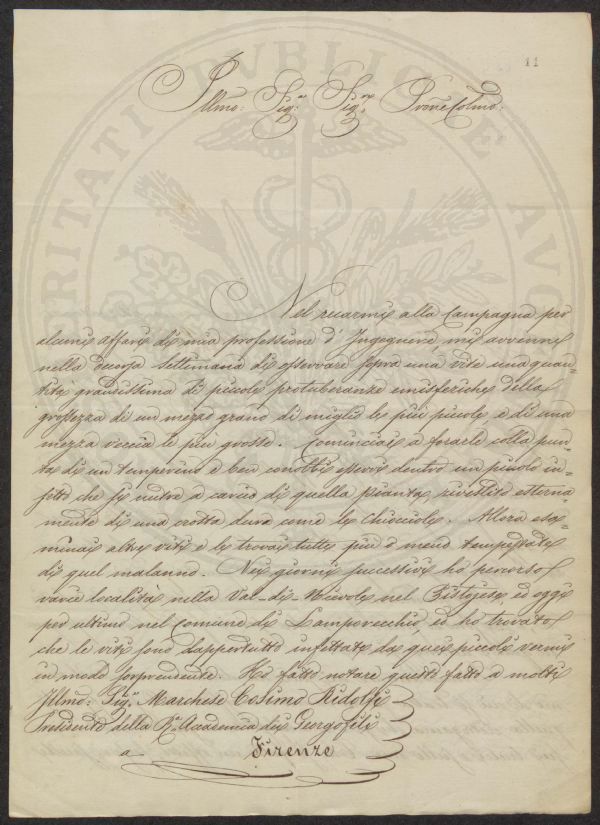 11
Illmo: Sig.re Sig.re Prone Colmo:
Nel recarmi alla Campagna per
alcuni affari di mia professione d'Ingegnere mi avvenne
nella decorsa Settimana di osservare sopra una vite una quan=
tità grandissima di piccole protuberanze emisferiche della
grossezza di un mezzo grano di miglio le più piccole e di una
mezza veccia le più grosse. Cominciai a forarle colla pun=
ta di un temperino e ben conobbi esservi dentro un piccolo in=
setto che si nutre a carico di quella pianta, rivestito esterna=
mente di una crosta dura come le Chiocciole. Allora esa=
minai altre viti e le trovai tutte più o meno tempestate
di quel malanno. Nei giorni successivi ho percorso
varie località nella Val=di Nievole nel Pistojese, ed oggi
per ultimo nel comune di Lamporecchio, ed ho trovato
che le viti sono dappertutto infettate da quei piccoli vermi
in modo sorprendente. Ho fatto notare questo fatto a molti
Illmo: Sig.re Marchese Cosimo Ridolfi
Presidente della R.a Accademia dei Georgofili
a Firenze
PROSPERITATI PUBLICAE AUGENDAE